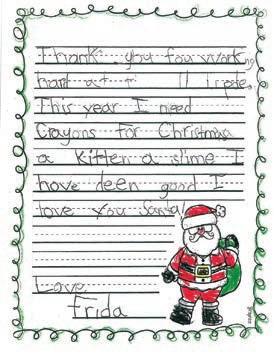 Thank you fou work
hard at
This year I need
Crayons for Christmas
a kitten a slime I
have deen good I
love you Santa!
Love,
Frida